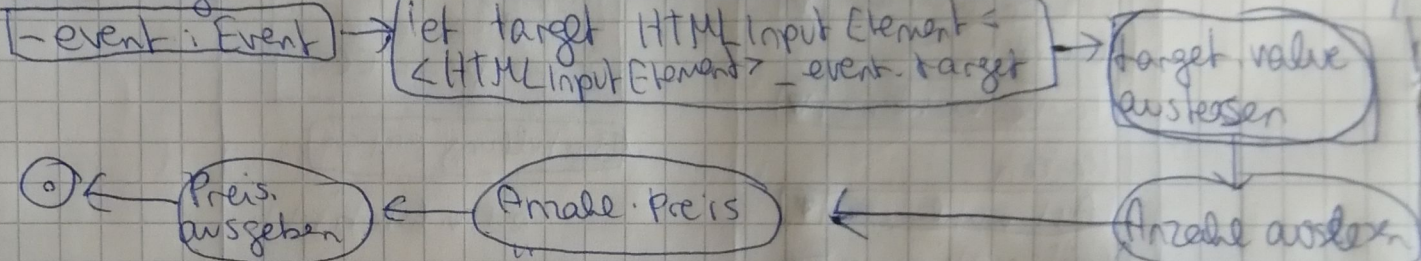 _event: Event
let target HTMLInputElement =
<HTMLInputElement> _event.target
target.value
auslessen
Anzahl auslesen
Anzahl · Preis
Preis.
ausgeben